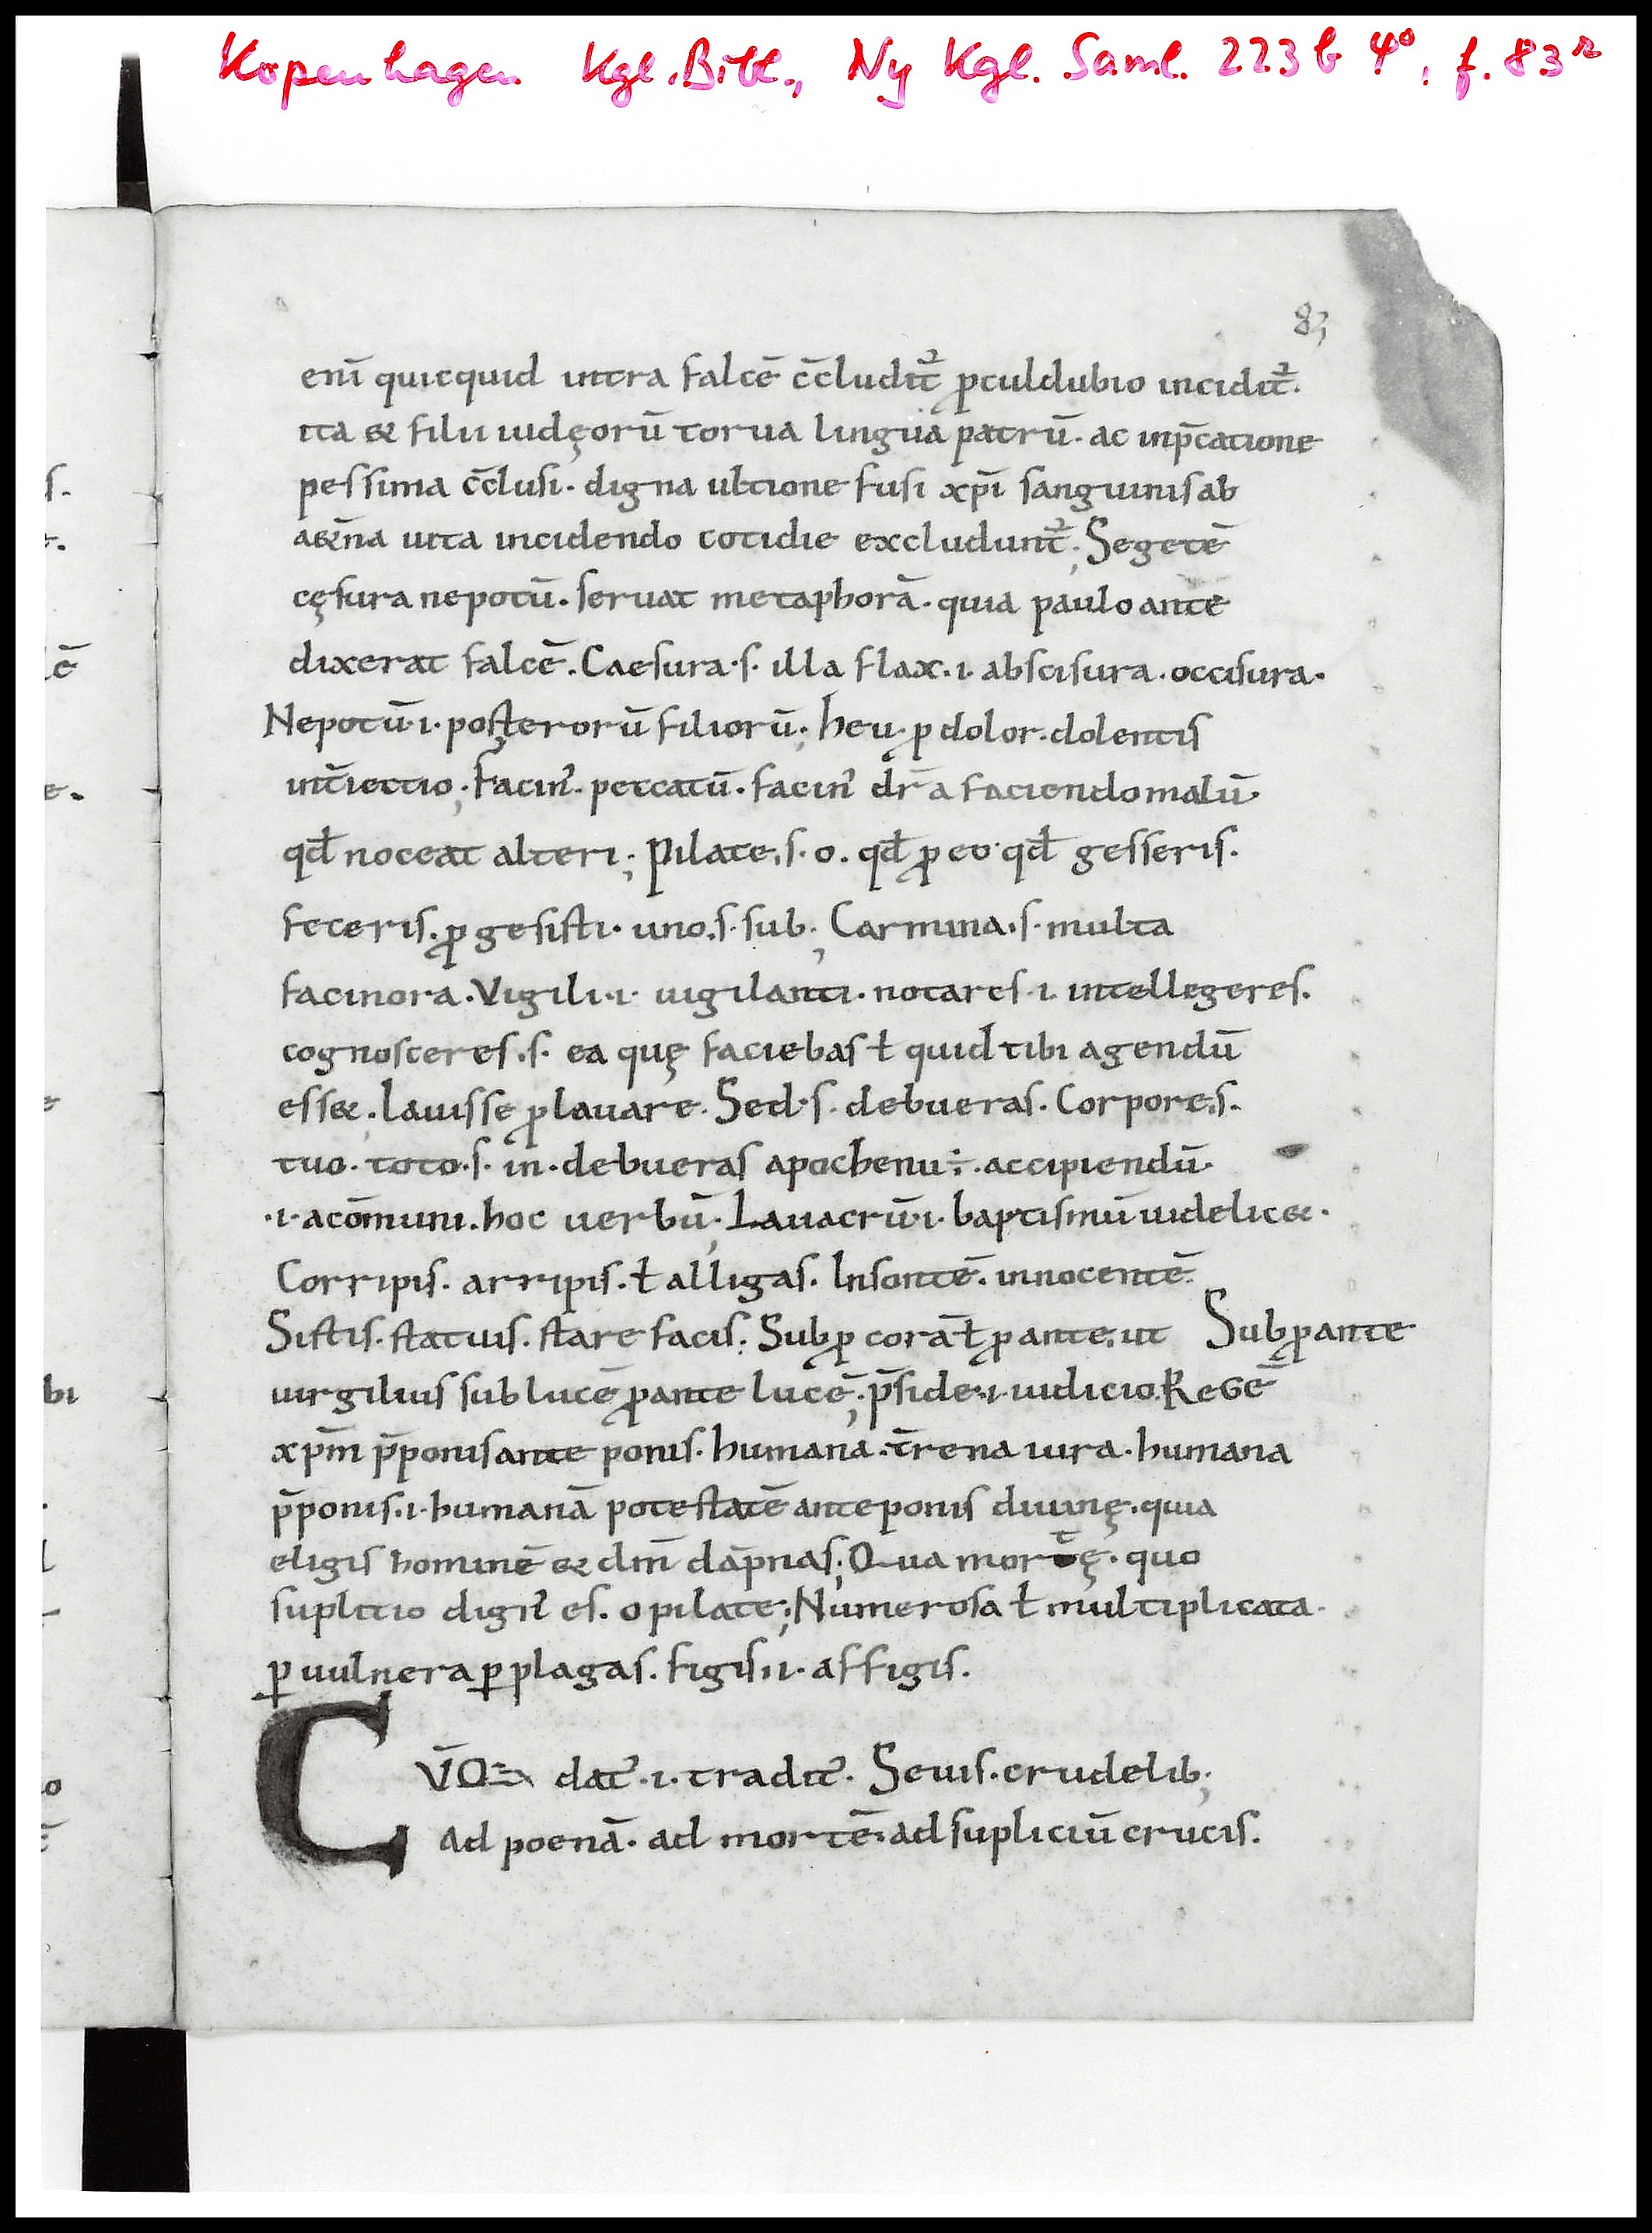 Kopenhagen Kgl. Bibl., Ny Kgl. Saml. 223 b 4°, f. 83r
83
eni̅ quicquid intra falce̅ c̅cludit᷑ ꝓculdubio incidit᷑.
ita & filii iudęoru̅ torua lingua patru̅. ac inp̅catione
pessima c̅clusi. digna ultione fusi xp̅i sanguinis ab
a&̅na uita incidendo cotidie excludunt᷑; Segete̅
cęsura nepotu̅. seruat metaphora̅. quia paulo ante
dixerat falce̅. Caesura .s. illa flax .i. abscisura. occisura.
Nepotu̅ .i. posteroru̅ filioru̅; heu. ꝓ dolor. dolentis
int̅iectio; Facin᷒. peccatu̅. facin᷒ dr̅ a faciendo malu̅
qđ noceat alteri; Pilate .s. o. qđ ꝓ eo qđ gesseris.
feceris. ꝓ gesisti. uno .s. sub; Carmina .s. multa
facinora. Vigili .i. uigilanti. notares .i. intellegeres.
cognosceres .s. ea quę faciebas ł quid tibi agendu̅
ess&; Lauisse ꝓ lauare. Sed .s. debueras. Corpore .s.
tuo. toto .s. in. debueras apochenu ÷. accipiendu̅
.i. a co̅muni. hoc uerbu̅; Lauacru̅ .i. baptismu̅ uidelic&.
Corripis. arripis. ł alligas. Insonte̅. innocente̅.
Sistis. statuis. stare facis; Sub ꝓ cora̅ ł ꝓ ante. ut Sub ꝓ ante
uirgilius sub luce̅ ꝓ ante luce̅; p̅side .i. iudicio. Rege̅
xp̅m p̅ponis ante ponis. humana. t̅rena iura. humana
p̅ponis .i. humana̅ potestate̅ ante ponis diuinę. quia
eligis homine̅ & dm̅ da̅pnas; Qua mortę. quo
suplitio dign᷒ es. o pilate; Numerosa ł multiplicata
ꝑ uulnera ꝑ plagas. figis .i. affigis.
CV̅Q: dat᷑ .i. tradit᷑. Seuis. crudelib;
Ad poena̅. ad morte̅. ad supliciu̅ crucis.